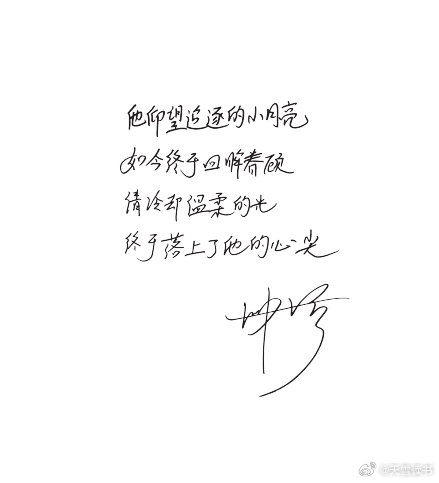 他仰望追逐的小月亮
如今终于回眸眷顾
清冷却温柔的光
终于落上了他的心尖